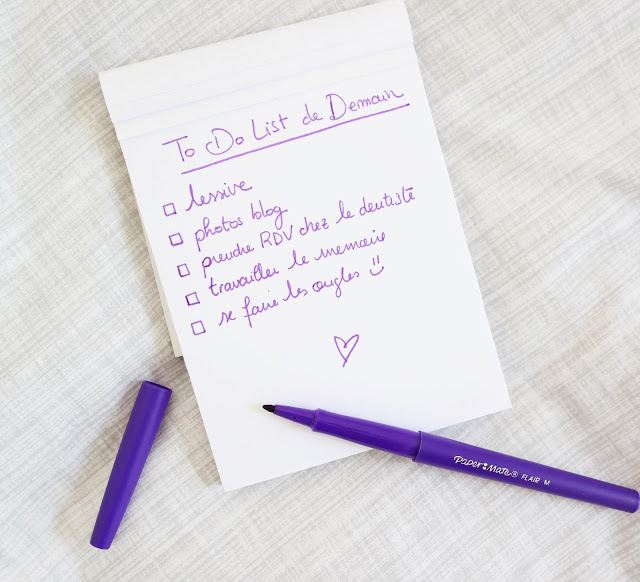 To Do List de Demain
lessive
photos blog
prendre RDV chez le dentiste
travailler le memoire
se faire les ongles
PAPER MATE® FLAIR M